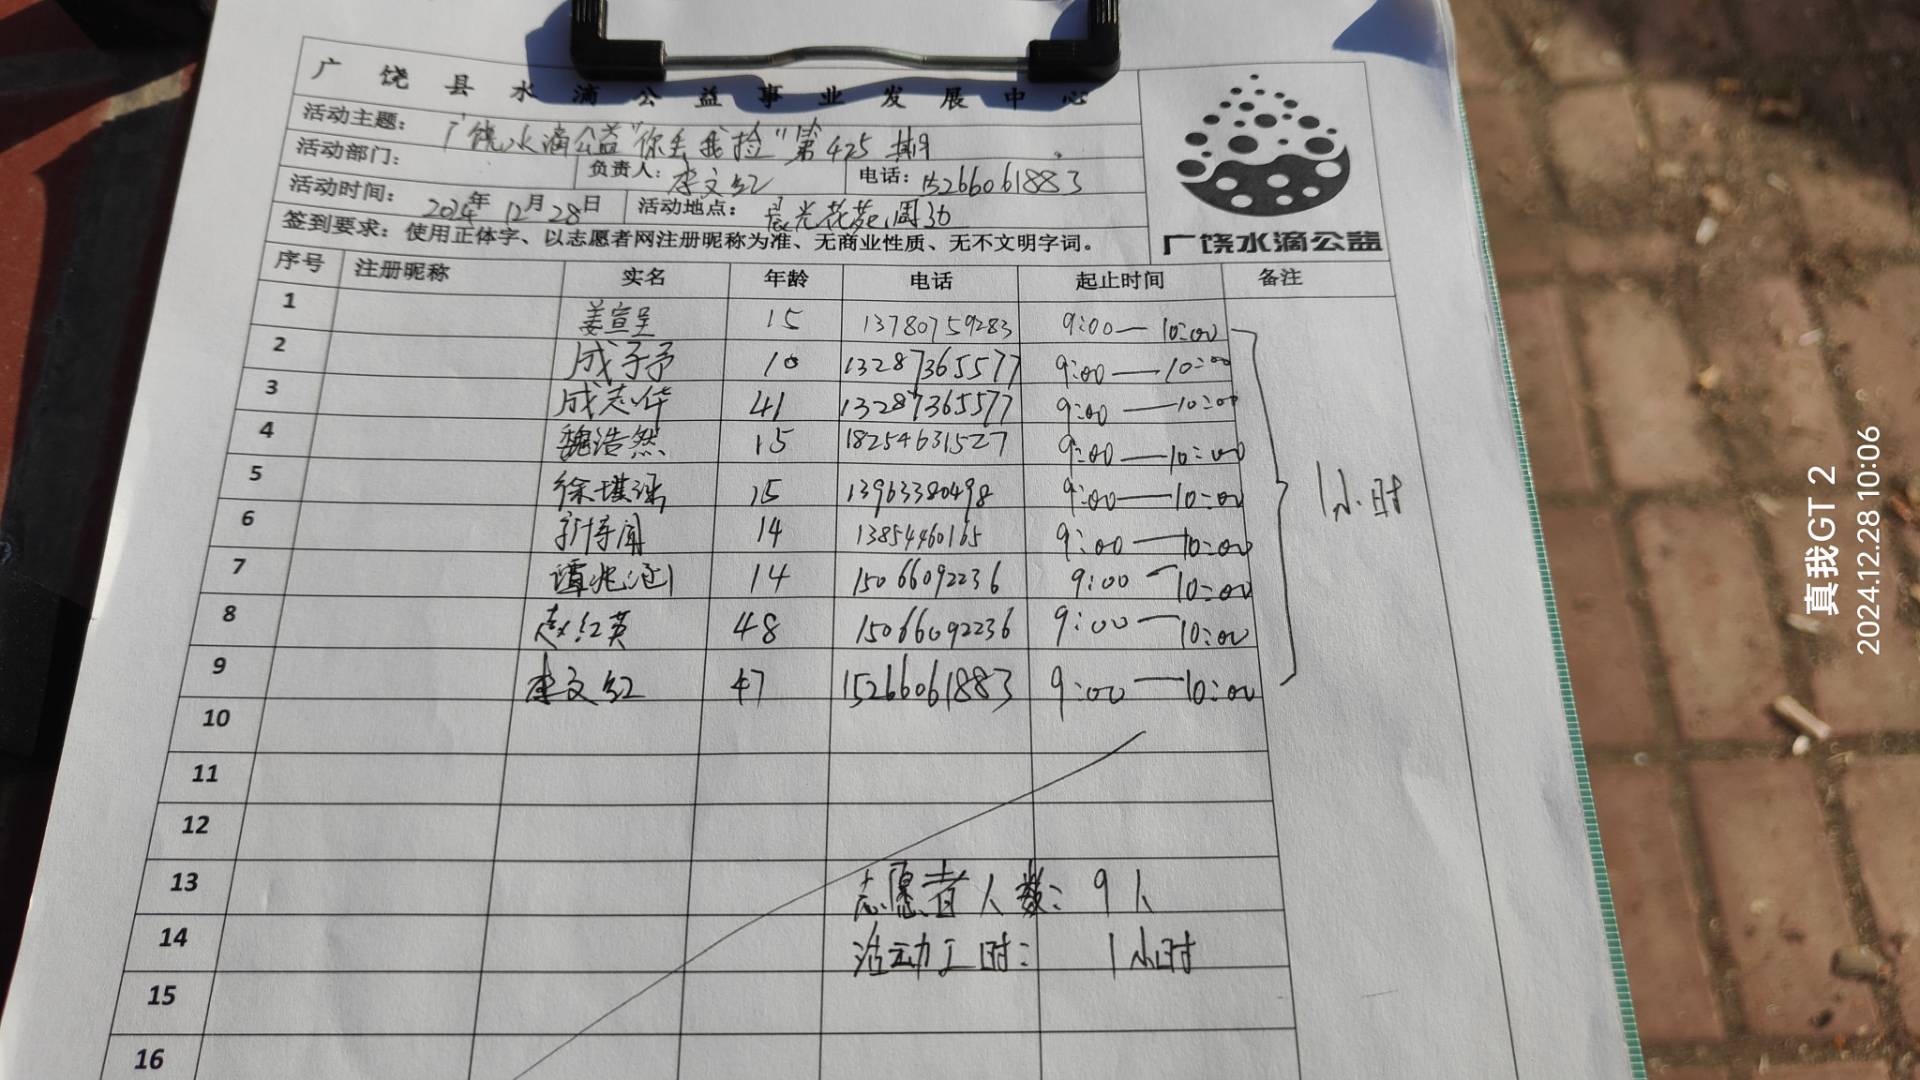 广饶县水滴公益事业发展中心
活动主题： 广饶水滴公益"你丢我捡"第425期
活动部门： 负责人：李文红 电话：15266061883
活动时间： 2024年12月28日 活动地点：晨光花苑周边
签到要求：使用正体字、以志愿者网注册昵称为准、无商业性质、无不文明字词。
广饶水滴公益
序号 注册昵称 实名 年龄 电话 起止时间 备注
1 姜宣呈 15 13780759283 9:00—10:00
2 成子予 10 13287365577 9:00—10:00
3 成志华 41 13287365577 9:00—10:00
4 魏浩然 15 18254631527 9:00—10:00
5 徐 15 13963380498 9:00—10:00 1小时
6 14 13854460165 9:00—10:00
7 谭兆 14 15066092236 9:00—10:00
8 赵红英 48 15066092236 9:00—10:00
9 李文红 47 15266061883 9:00—10:00
10
11
12
13 志愿者人数：9人
14 活动工时：1小时
15
16
真我GT 2
2024.12.28 10:06